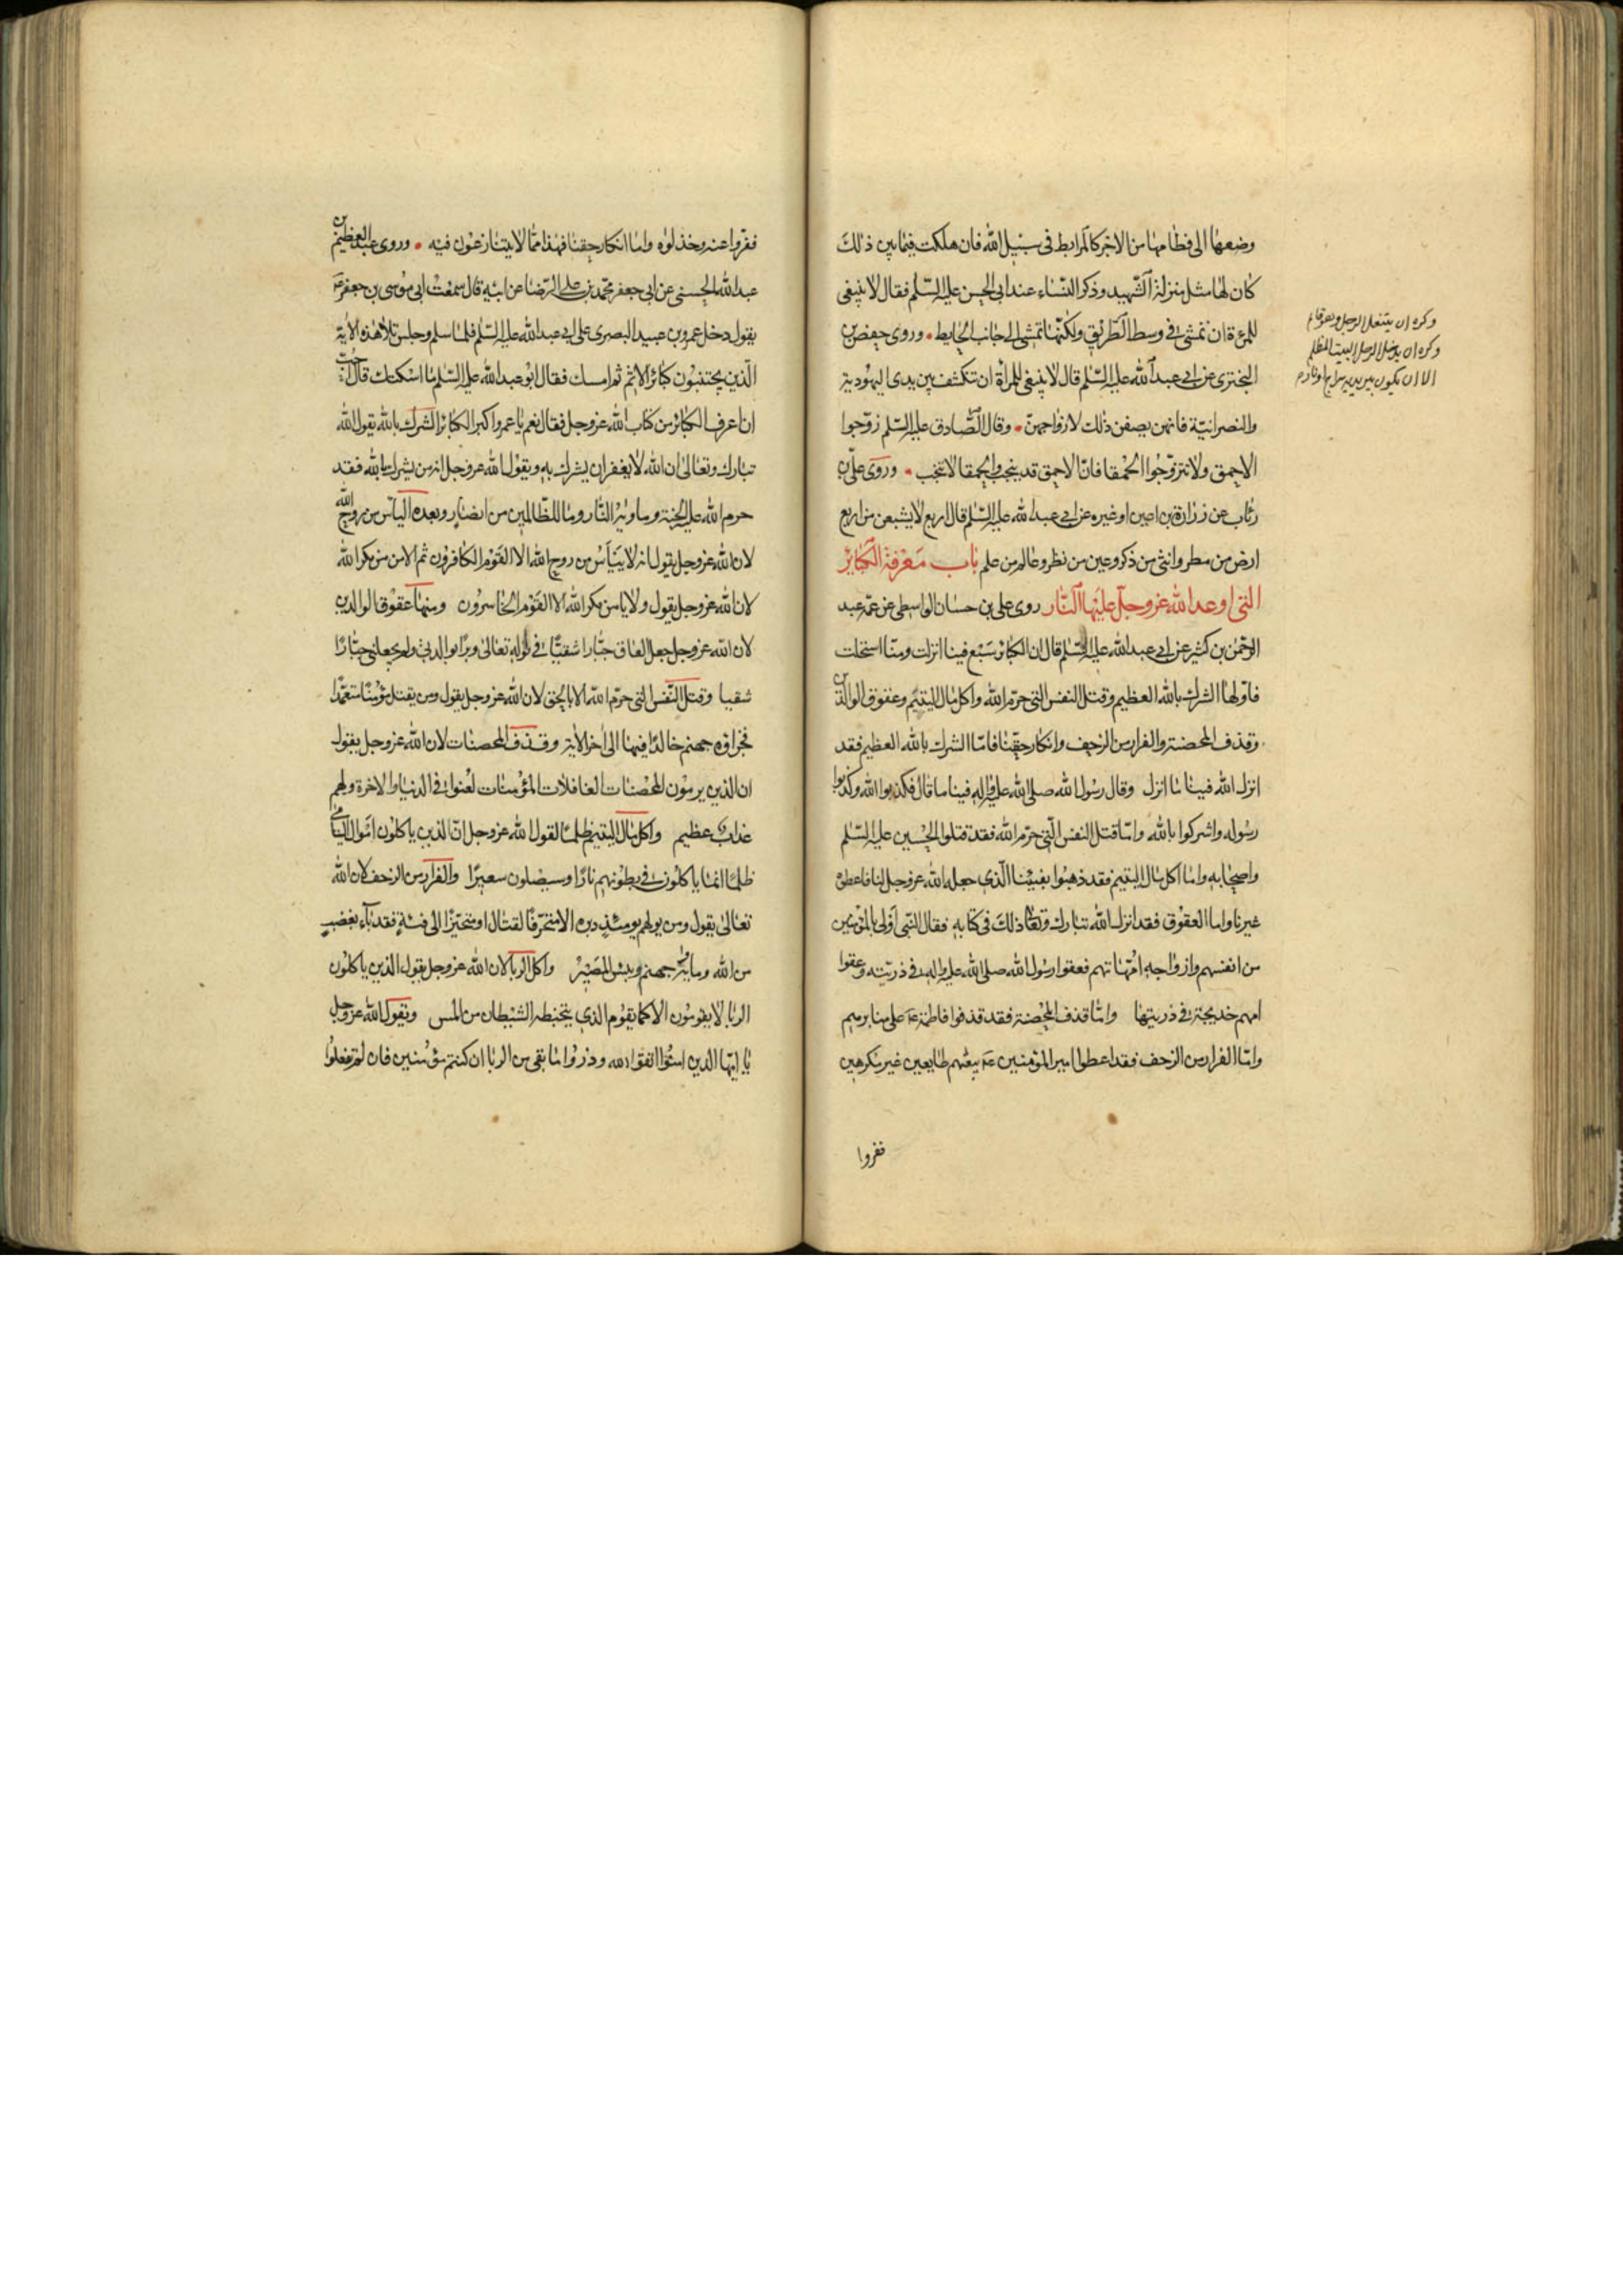 وضعها الى فطامها من الاجر كالمرابط فى سبيل الله فان هلكت فيما بين ذلك
كان لها مثل منزلة الشهيد وذكر النساء عند ابى الحسن عليه السلم فقال لا ينبغى
للمرءة ان تمشى فى وسط الطريق ولكنها تمشى الى جانب الحايط وروى حفص بن
البخترى عن ابى عبد الله عليه السلم قال لا ينبغى للمرأة ان تكشف بين يدى اليهودية
والنصرانية فانهن يصفن ذلك لازواجهن وقال الصادق عليه السلم زوجوا
الاحمق ولا تتزوجوا الحمقا فان الاحمق قد ينجب والحمقا لا تنجب وروى على بن
رئاب عن زرارة بن اعين او غيره عن ابى عبد الله عليه السلم قال اربع لا يشبعن من اربع
ارض من مطر وانثى من ذكر وعين من نظر وعالم من علم باب معرفة الكبائر
التى اوعد الله عز وجل عليها النار روى على بن حسان الواسطى عن عمه عبد
الرحمن بن كثير عن ابى عبد الله عليه السلم قال ان الكبائر سبع فينا انزلت ومنا استحلت
فاولها الشرك بالله العظيم وقتل النفس التى حرم الله واكل مال اليتيم وعقوق الوالدين
وقذف المحصنة والفرار من الزحف وانكار حقنا فاما الشرك بالله العظيم فقد
انزل الله فينا ما انزل وقال رسول الله صلى الله عليه واله فينا ما قال فكذبوا الله وكذبوا
رسوله واشركوا بالله واما قتل النفس التى حرم الله فقد قتلوا الحسين عليه السلم
واصحابه واما اكل مال اليتيم فقد ذهبوا بفيئنا الذى جعله الله عز وجل لنا فاعطوه
غيرنا واما العقوق فقد انزل الله تبارك وتعالى ذلك فى كتابه فقال النبى اولى بالمؤمنين
من انفسهم وازواجه امهاتهم فعقوا رسول الله صلى الله عليه واله فى ذريته وعقوا
امهم خديجة فى ذريتها واما قذف المحصنة فقد قذفوا فاطمة ع على منابرهم
واما الفرار من الزحف فقد اعطوا امير المؤمنين ع بيعتهم طايعين غير مكرهين
ففروا
وكره ان يتنعل الرجل وهو قائم
وكره ان يدخل الرجل البيت المظلم
الا ان يكون بين يديه سراج او نار م
ففروا عنه وخذلوه واما انكار حقنا فهذا مما لا يتنازعون فيه وروى عبد العظيم بن
عبد الله الحسنى عن ابى جعفر محمد بن على الرضا عن ابيه قال سمعت ابى موسى بن جعفر ع
يقول دخل عمرو بن عبيد البصرى على ابى عبد الله عليه السلم فلما سلم وجلس تلا هذه الاية
الذين يجتنبون كبائر الاثم ثم امسك فقال ابو عبد الله عليه السلم ما اسكتك قال احب
ان اعرف الكبائر من كتاب الله عز وجل فقال نعم يا عمرو اكبر الكبائر الشرك بالله يقول الله
تبارك وتعالى ان الله لا يغفر ان يشرك به ويقول الله عز وجل انه من يشرك بالله فقد
حرم الله عليه الجنة وماويه النار وما للظالمين من انصار وبعده الياس من روح الله
لان الله عز وجل يقول انه لا ييأس من روح الله الا القوم الكافرون ثم الامن من مكر الله
لان الله عز وجل يقول ولا يامن مكر الله الا القوم الخاسرون ومنها عقوق الوالدين
لان الله عز وجل جعل العاق جبارا شقيا فى قوله تعالى وبرا بوالدتى ولم يجعلنى جبارا
شقيا وقتل النفس التى حرم الله الا بالحق لان الله عز وجل يقول ومن يقتل مؤمنا متعمدا
فجزاؤه جهنم خالدا فيها الى اخر الاية وقذف المحصنات لان الله عز وجل يقول
ان الذين يرمون المحصنات الغافلات المؤمنات لعنوا فى الدنيا والاخرة ولهم
عذاب عظيم واكل مال اليتيم ظلما لقول الله عز وجل ان الذين ياكلون اموال اليتامى
ظلما انما ياكلون فى بطونهم نارا وسيصلون سعيرا والفرار من الزحف لان الله
تعالى يقول ومن يولهم يومئذ دبره الا متحرفا لقتال او متحيزا الى فئة فقد باء بغضب
من الله وماويه جهنم وبئس المصير واكل الربا لان الله عز وجل يقول الذين ياكلون
الربا لا يقومون الا كما يقوم الذى يتخبطه الشيطان من المس ويقول الله عز وجل
يا ايها الذين امنوا اتقوا الله وذروا ما بقى من الربا ان كنتم مؤمنين فان لم تفعلوا